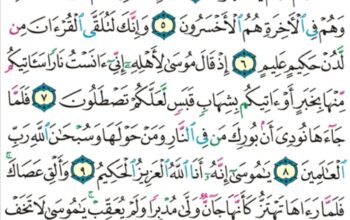 وَهُمْ فِي ٱلْأَخِرَةِ هُمُ ٱلْأَخْسَرُونَ ٥ وَإِنَّكَ لَتُلَقَّى ٱلْقُرْءَانَ مِن
لَّدُنْ حَكِيمٍ عَلِيمٍ ٦ إِذْ قَالَ مُوسَىٰ لِأَهْلِهِۦٓ إِنِّيٓ ءَانَسْتُ نَارًا سَـَٔاتِيكُم
مِّنْهَا بِخَبَرٍ أَوْ ءَاتِيكُم بِشِهَابٍ قَبَسٍ لَّعَلَّكُمْ تَصْطَلُونَ ٧ فَلَمَّا
جَآءَهَا نُودِيَ أَنۢ بُورِكَ مَن فِي ٱلنَّارِ وَمَنْ حَوْلَهَا وَسُبْحَٰنَ ٱللَّهِ رَبِّ
ٱلْعَٰلَمِينَ ٨ يَٰمُوسَىٰٓ إِنَّهُۥٓ أَنَا ٱللَّهُ ٱلْعَزِيزُ ٱلْحَكِيمُ ٩ وَأَلْقِ عَصَاكَ ۚ
فَلَمَّا رَءَاهَا تَهْتَزُّ كَأَنَّهَا جَآنٌّ وَلَّىٰ مُدْبِرًا وَلَمْ يُعَقِّبْ ۚ يَٰمُوسَىٰ لَا تَخَفْ